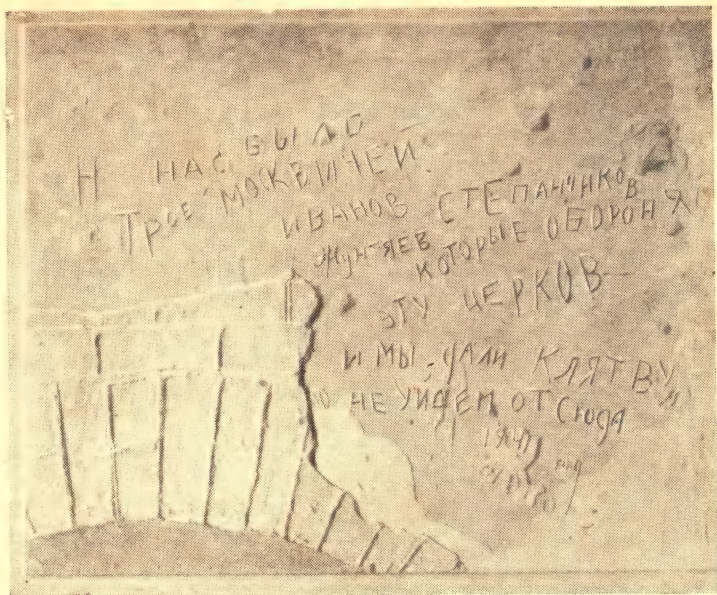 Н НАС БЫЛО
ТРОЕ МОСКВИЧЕЙ.
ИВАНОВ СТЕПАНЧИКОВ
ЖУНТЯЕВ
КОТОРЫЕ ОБОРОНЯ
ЭТУ ЦЕРКОВ
И МЫ ДАЛИ КЛЯТВУ
НЕ УЙДЕМ ОТСЮДА
1941